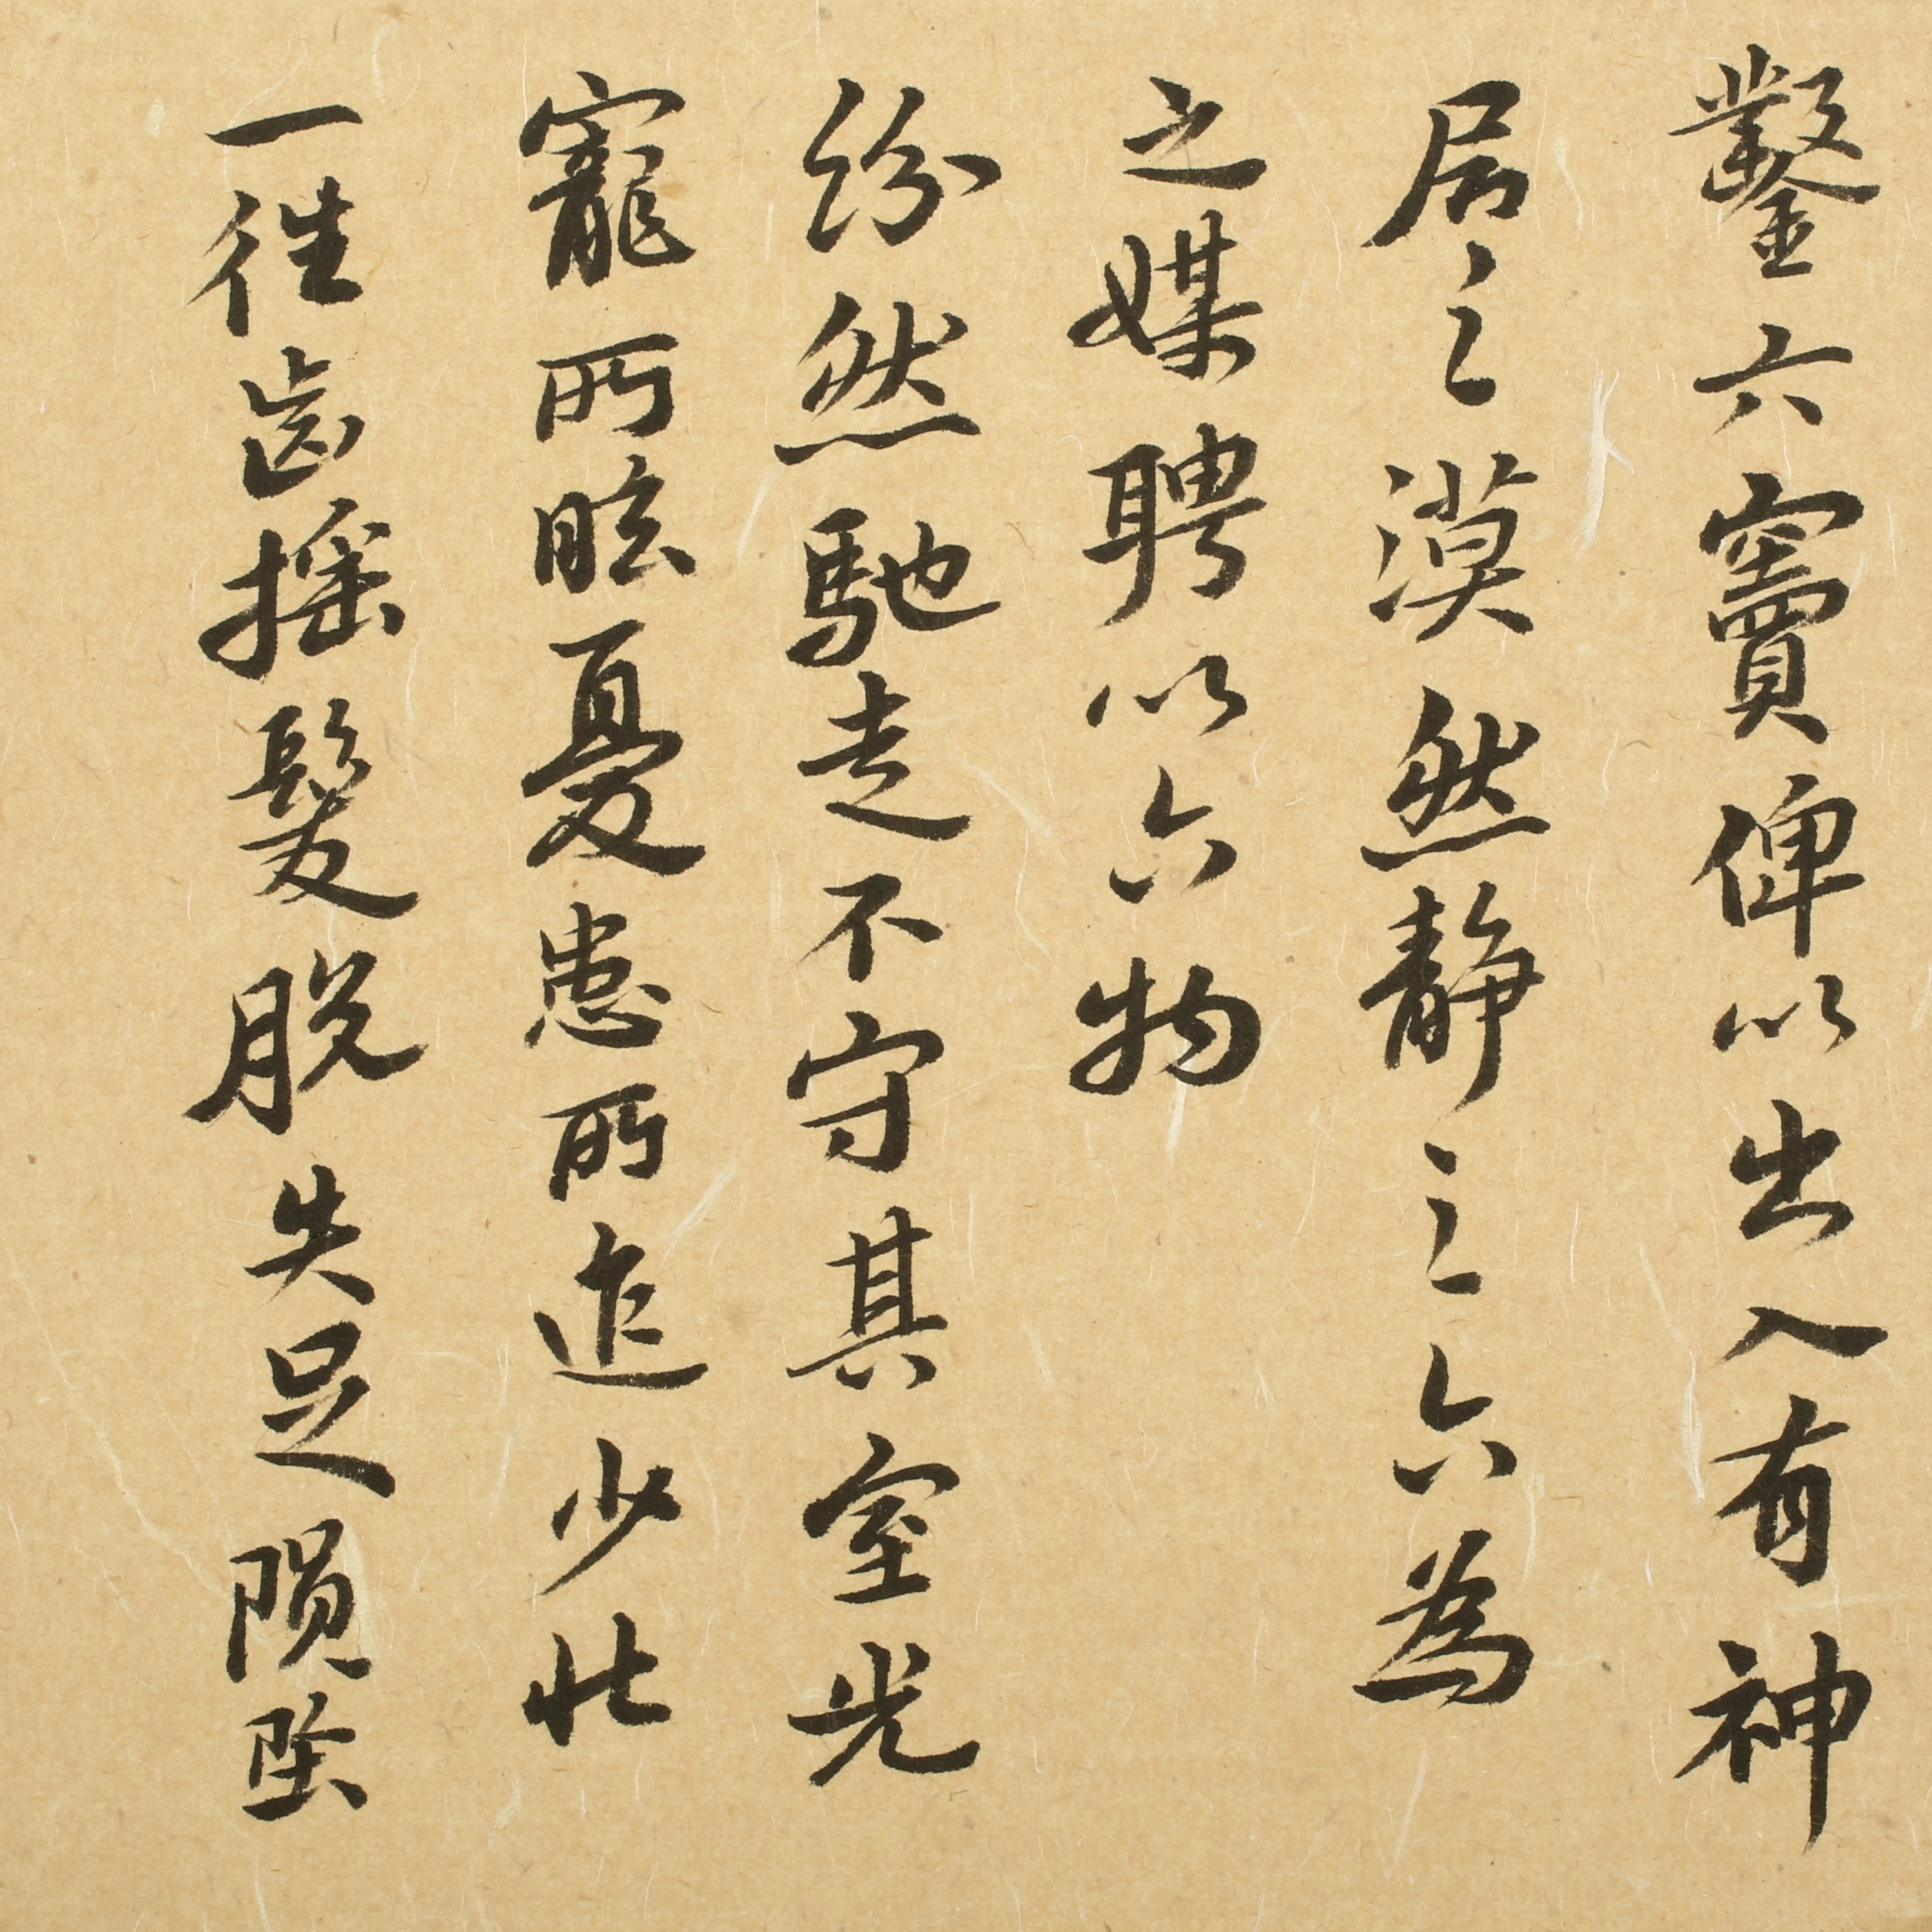 鑿六竇俾以出入有神
居之漠然静之六為
之媒聘以六物
紛然馳走不守其室光
寵所眩憂患所迮少壮
一往齒摇髮脱失足隕墜